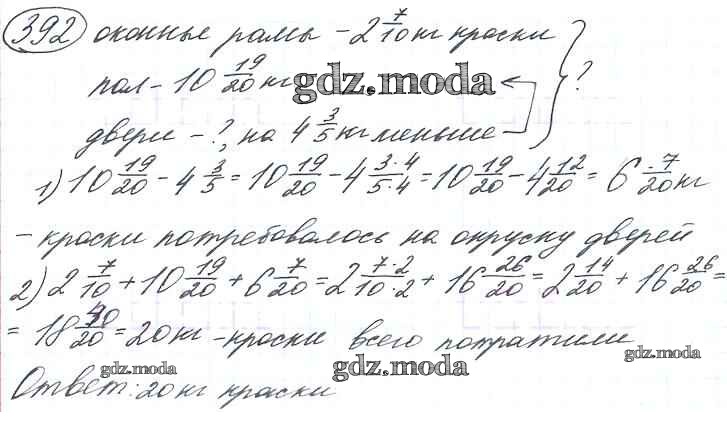 392 оконные рамы - 2 7/10 кг краски
пол - 10 19/20 кг gdz.moda } ?
двери - ?, на 4 3/5 кг меньше
1) 10 19/20 - 4 3/5 = 10 19/20 - 4 3·4/5·4 = 10 19/20 - 4 12/20 = 6 7/20 кг
- краски потребовалось на окруску дверей
2) 2 7/10 + 10 19/20 + 6 7/20 = 2 7·2/10·2 + 16 26/20 = 2 14/20 + 16 26/20 =
= 18 40/20 = 20 кг - краски всего потратили
gdz.moda gdz.moda gdz.moda
Ответ: 20 кг краски